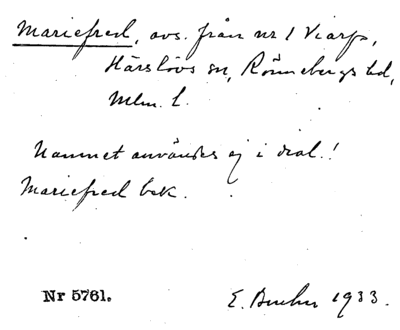 Mariefred, avs. från nr 1 Viarp,
Härslövs sn, Rönnebergs hd,
Mlm. l.
Namnet användes ej i dial.!
Mariefred bek.
Nr 5761. E. 1933.